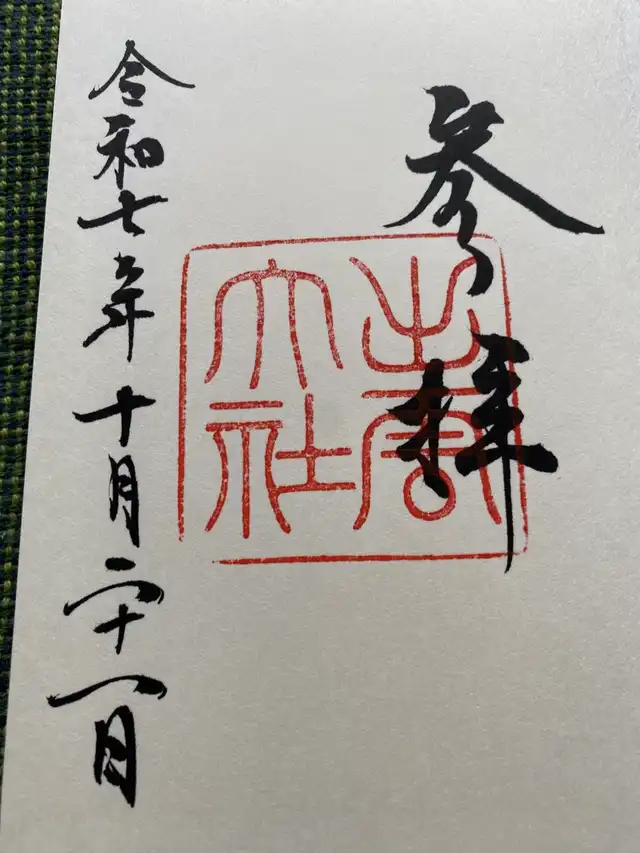 参拝
出雲
大社
令和七年十月二十一日